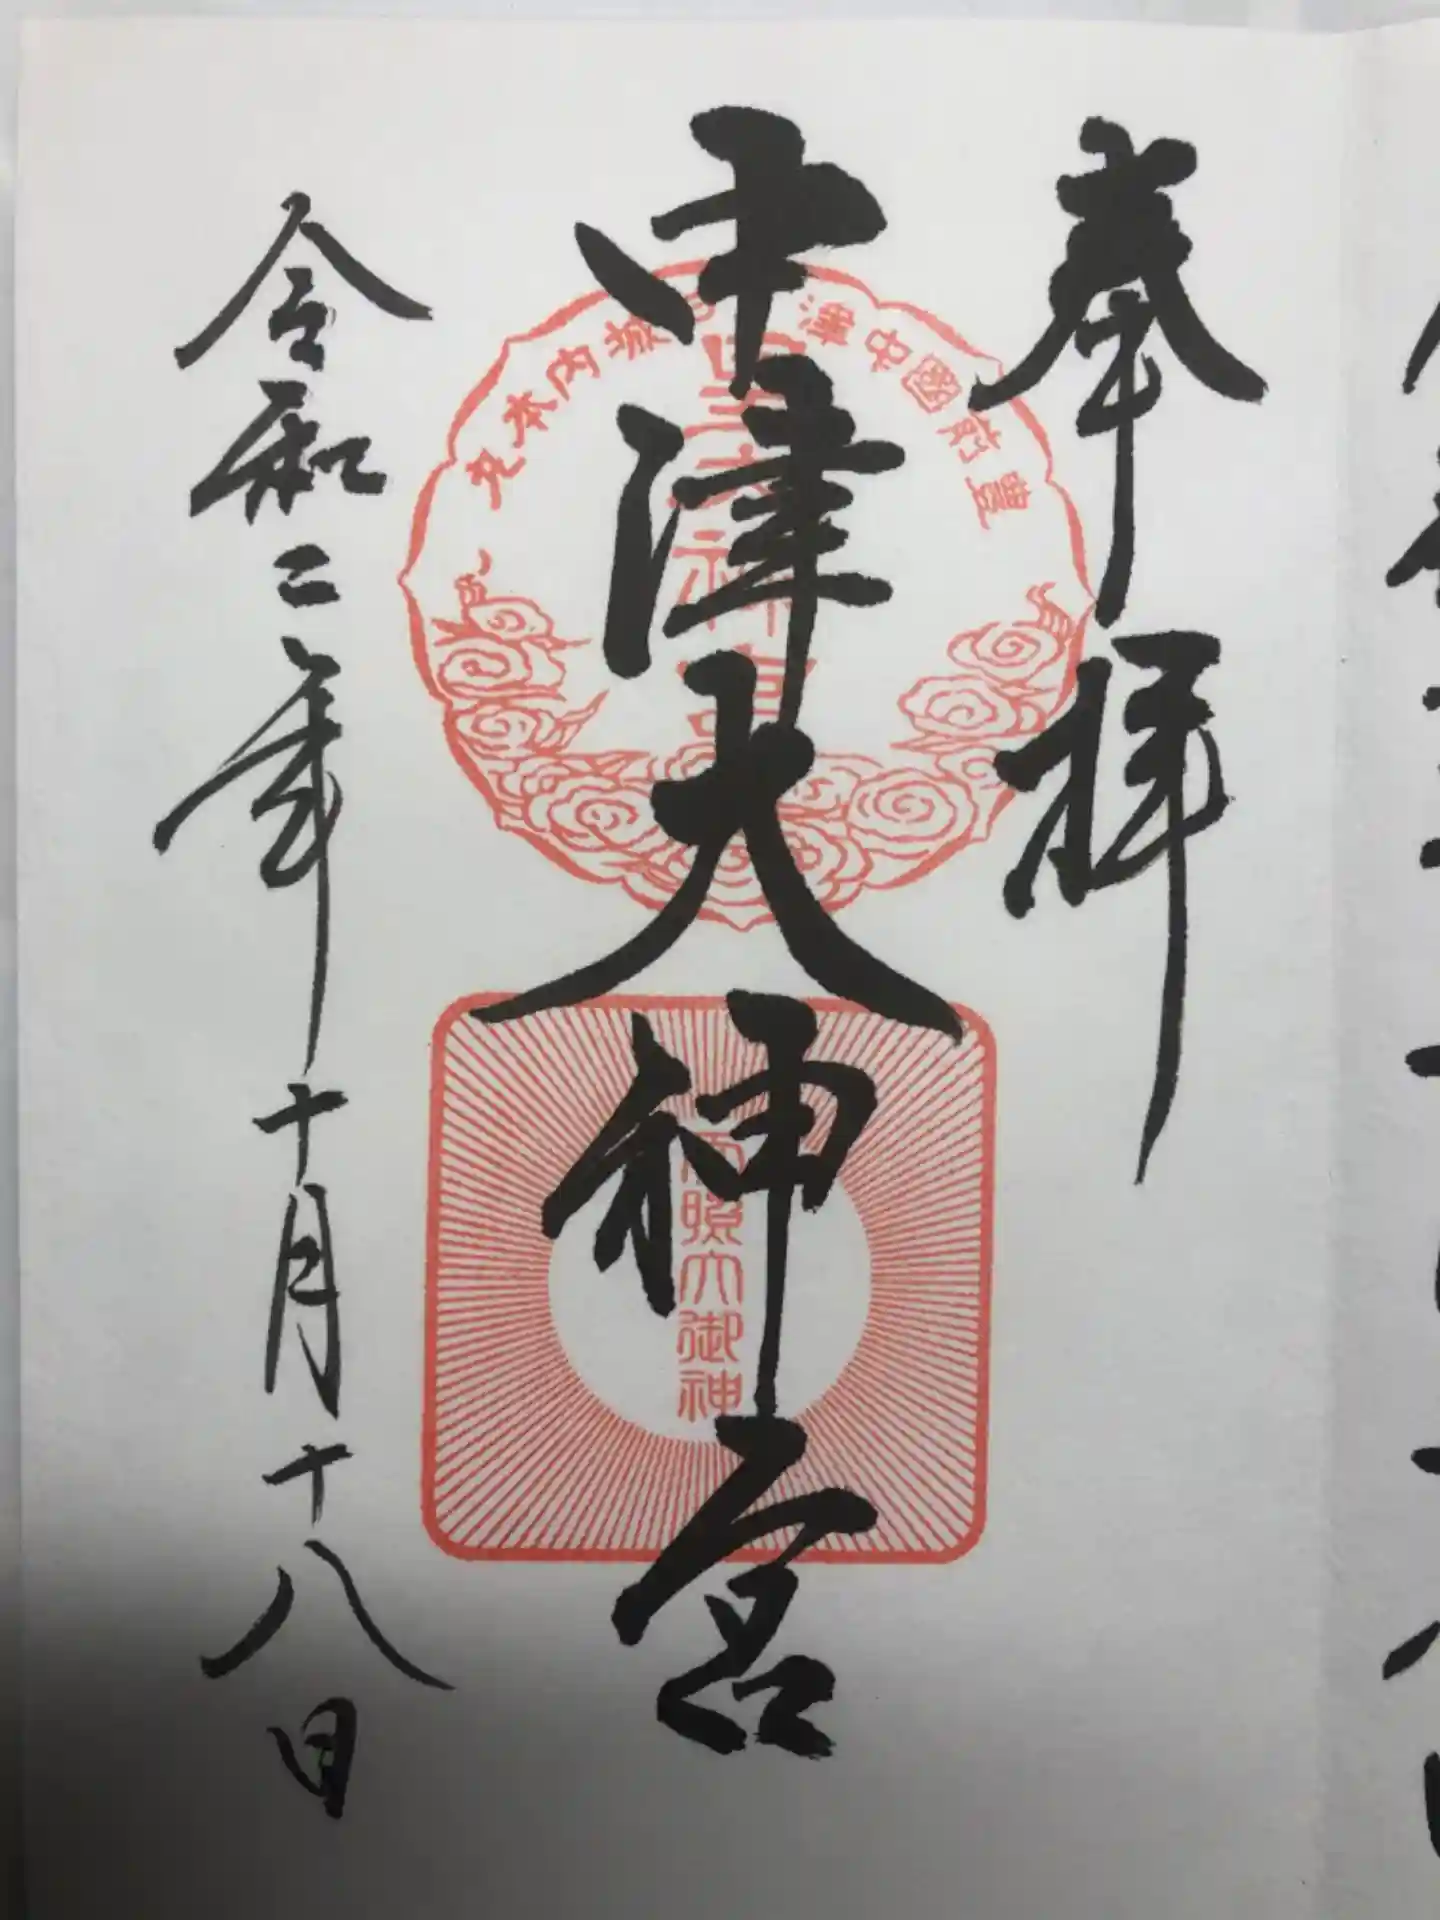 奉拝
中津大神宮
令和二年十月十八日
豊前國中津
城内本丸
大神宮
照大御神